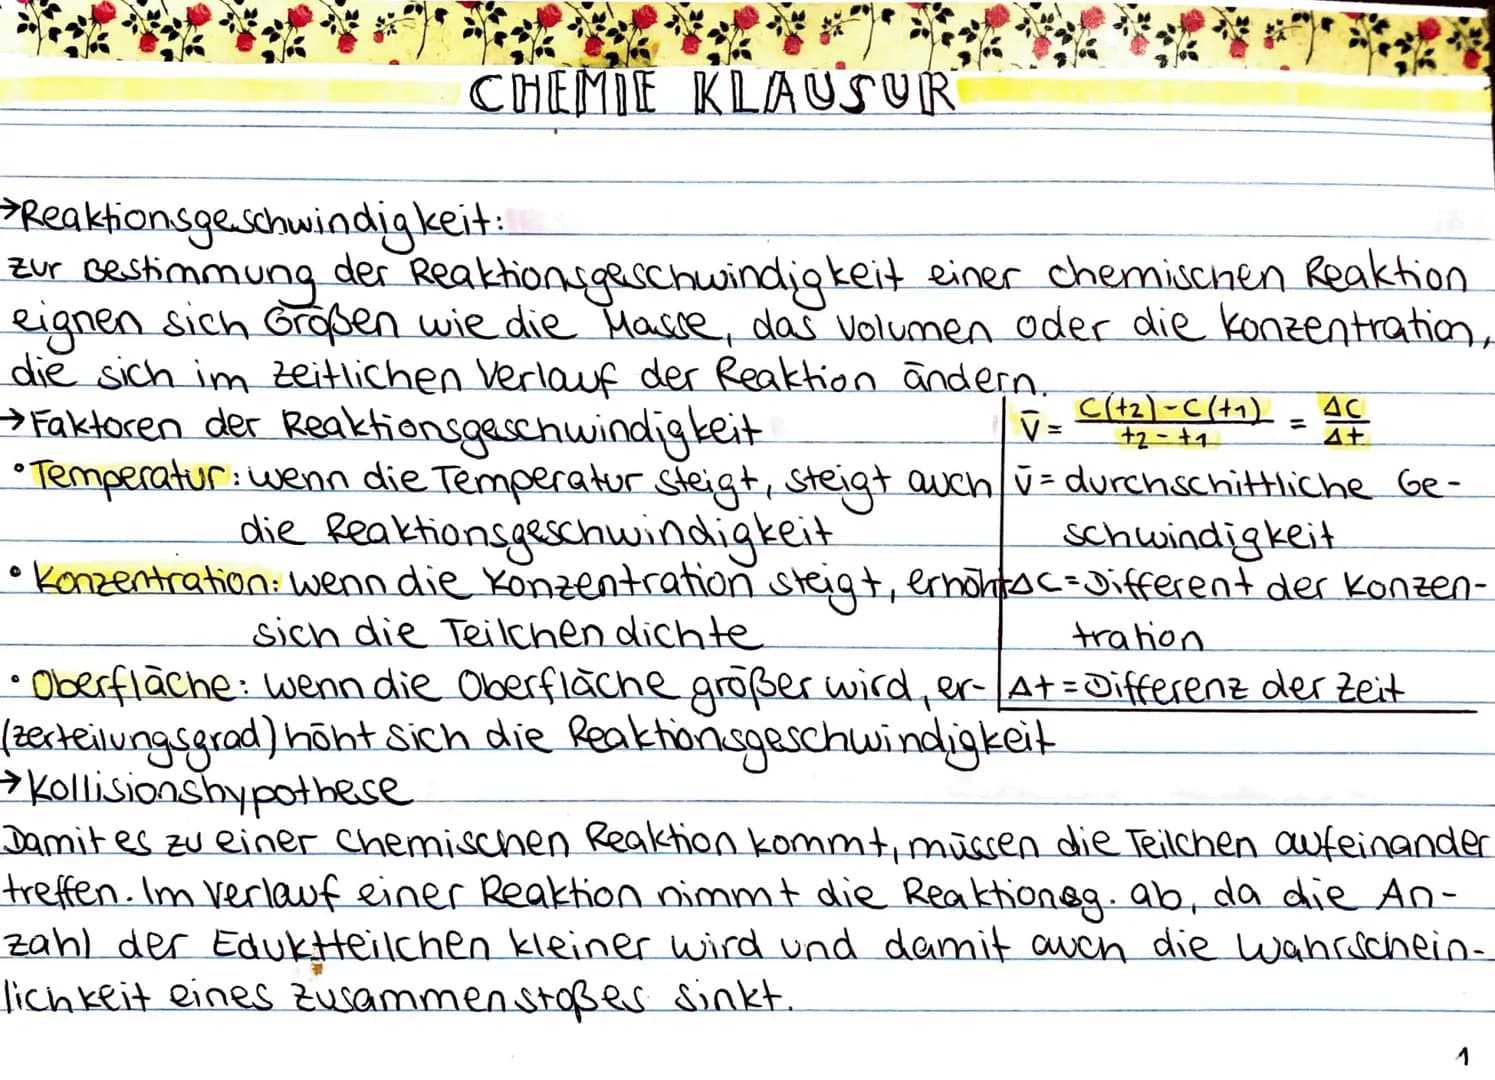 CHEMIE KLAUSUR
→Reaktionsgeschwindigkeit:
zur Bestimmung der Reaktionsgeschwindigkeit einer chemischen Reaktion
eignen sich Größen wie die Masse, das Volumen oder die Konzentration,
die sich im zeitlichen Verlauf der Reaktion ändern.
→Faktoren der Reaktionsgeschwindigkeit
• Temperatur: wenn die Temperatur steigt, steigt auch
die Reaktionsgeschwindigkeit
• Konzentration: wenn die Konzentration steigt, erhöht
sich die Teilchendichte
• Oberfläche: wenn die Oberfläche größer wird, er-
(zerteilungsgrad) höht sich die Reaktionsgeschwindigkeit
v̄ = C(t2)-C(t1) / t2-t1 = ΔC / Δt
v̄ = durchschnittliche Ge-
schwindigkeit
ΔC = Different der Konzen-
tration
Δt = Differenz der Zeit
→Kollisionshypothese
Damit es zu einer chemischen Reaktion kommt, müssen die Teilchen aufeinander
treffen. Im Verlauf einer Reaktion nimmt die Reaktionsg. ab, da die An-
zahl der Eduktteilchen kleiner wird und damit auch die Wahrschein-
lichkeit eines zusammenstoßes sinkt.
1